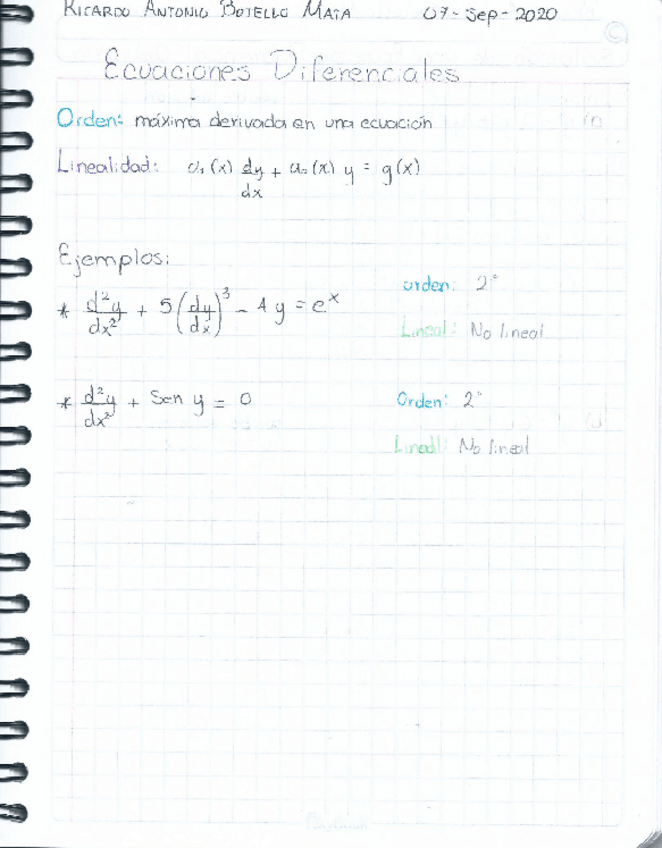 RICARDO ANTONIO BOTELLO MATA 07-Sep-2020
Ecuaciones Diferenciales
Orden: máxima derivada en una ecuación
Linealidad: a₁(x) dy/dx + a₀(x) y = g(x)
Ejemplos:
* d²y/dx² + 5(dy/dx)³ - 4y = eˣ
orden: 2°
Lineal: No lineal
* d²y/dx² + Sen y = 0
Orden: 2°
Lineal: No lineal